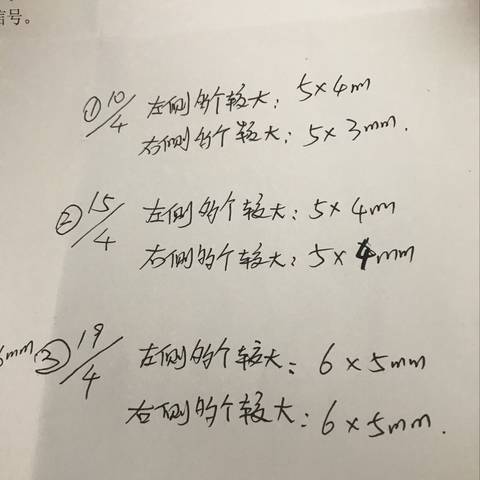 信号。
①10/4 左侧约个较大：5×4m
右侧约个较大：5×3mm.
②15/4 左侧约个较大：5×4m
右侧约个较大：5×4mm
mm
③19/4 左侧约个较大：6×5mm
右侧约个较大：6×5mm.